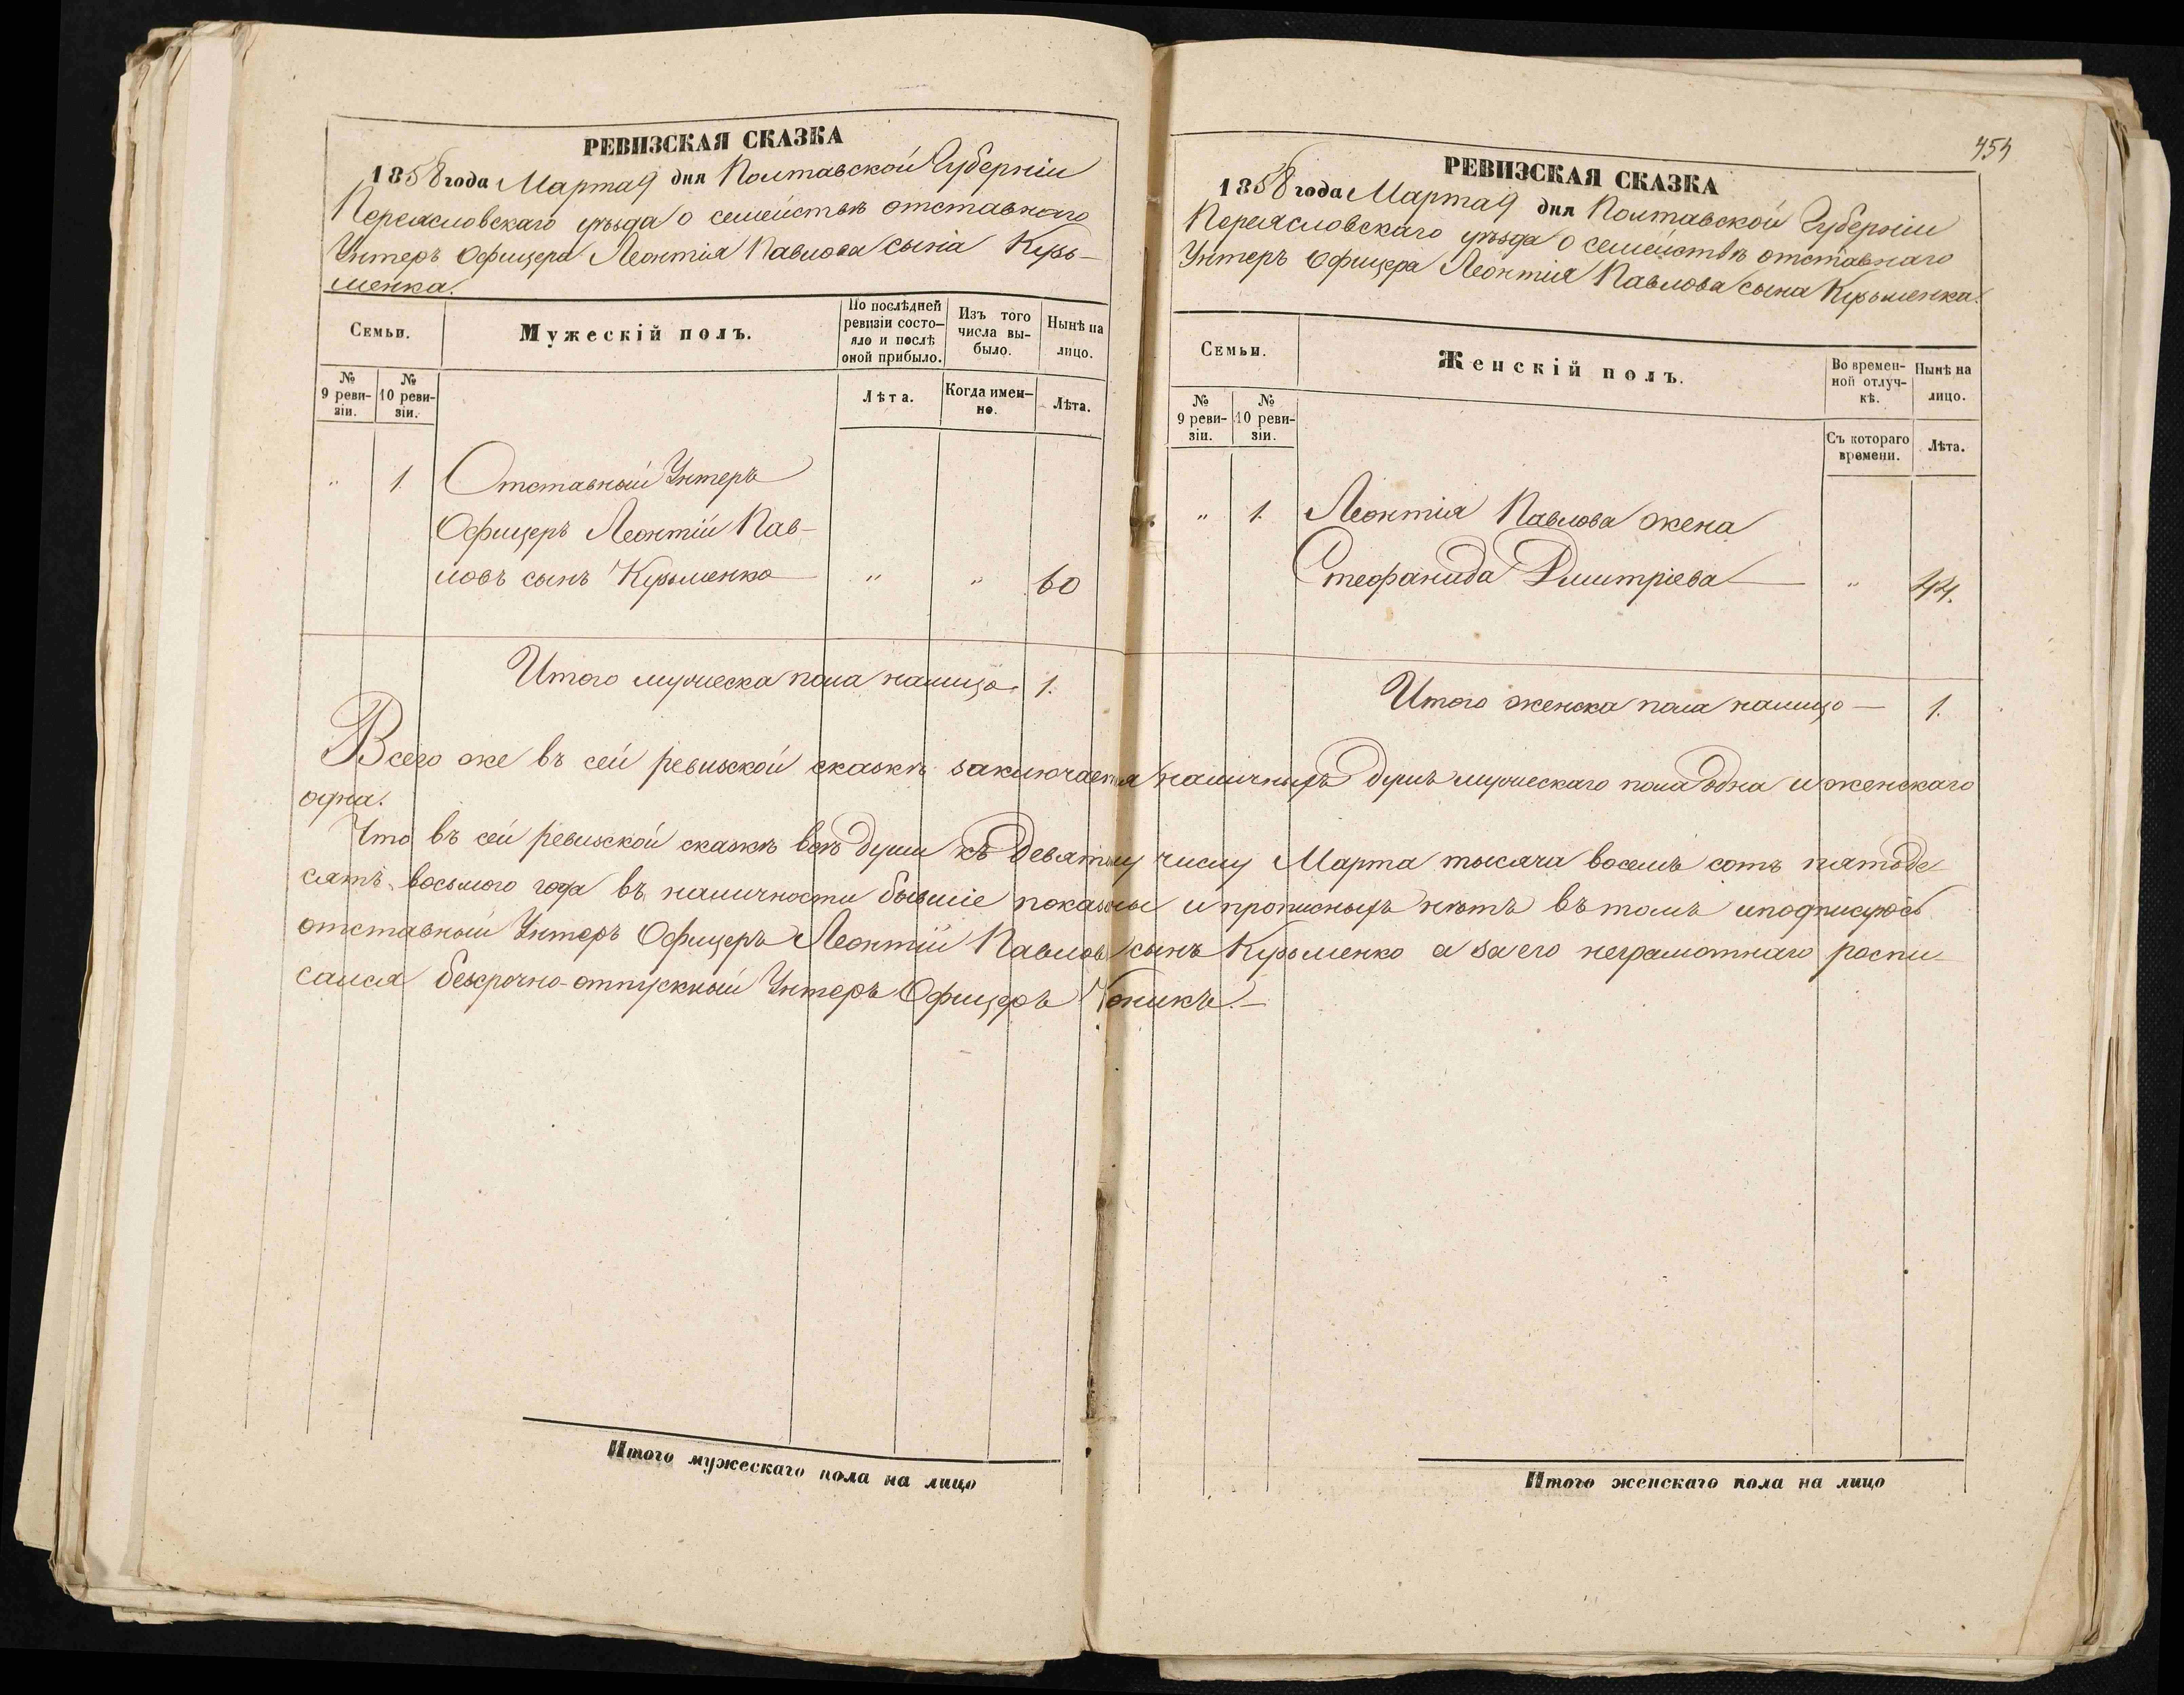 РЕВИЗСКАЯ СКАЗКА
1858 года Марта 9 дня Полтавской Губерніи
Переясловскаго уѣзда о семействѣ отставнаго
Унтеръ Офицера Леонтія Павлова сына Кузь-
менка.
Семьи.
Мужескій полъ.
По послѣдней ревизіи состо-яло и послѣ оной прибыло.
Изъ того числа вы-было.
Нынѣ на лицо.
№ 9 реви-зіи.
№ 10 реви-зіи.
Лѣта.
Когда имен-но.
Лѣта.
" 1. Отставный Унтеръ
Офицеръ Леонтій Пав-
ловъ сынъ Кузьменко " " 60
Итого мужеска пола налицо. 1.
454
РЕВИЗСКАЯ СКАЗКА
1858 года Марта 9 дня Полтавской Губерніи
Переясловскаго уѣзда о семействѣ отставнаго
Унтеръ Офицера Леонтія Павлова сына Кузьменка.
Семьи.
Женскій полъ.
Во времен-ной отлуч-кѣ.
Нынѣ на лицо.
№ 9 реви-зіи.
№ 10 реви-зіи.
Съ котораго времени.
Лѣта.
" 1. Леонтія Павлова жена
Стефанида Дмитріева " 44.
Итого женска пола налицо — 1.
Всего же въ сей ревизской сказкѣ заключается наличныхъ душъ мужескаго пола одна и женскаго
одна.
Что въ сей ревизской сказкѣ всѣ души къ девятому числу Марта тысяча восемь сотъ пятьде
сятъ восьмого года въ наличности бывшіе показаны и прописныхъ нѣтъ въ томъ и подписуюсь
отставный Унтеръ Офицеръ Леонтій Павловъ сынъ Кузьменко а за его неграмотнаго роспи-
сался безсрочно-отпускный Унтеръ Офицеръ
Итого мужескаго пола на лицо
Итого женскаго пола на лицо